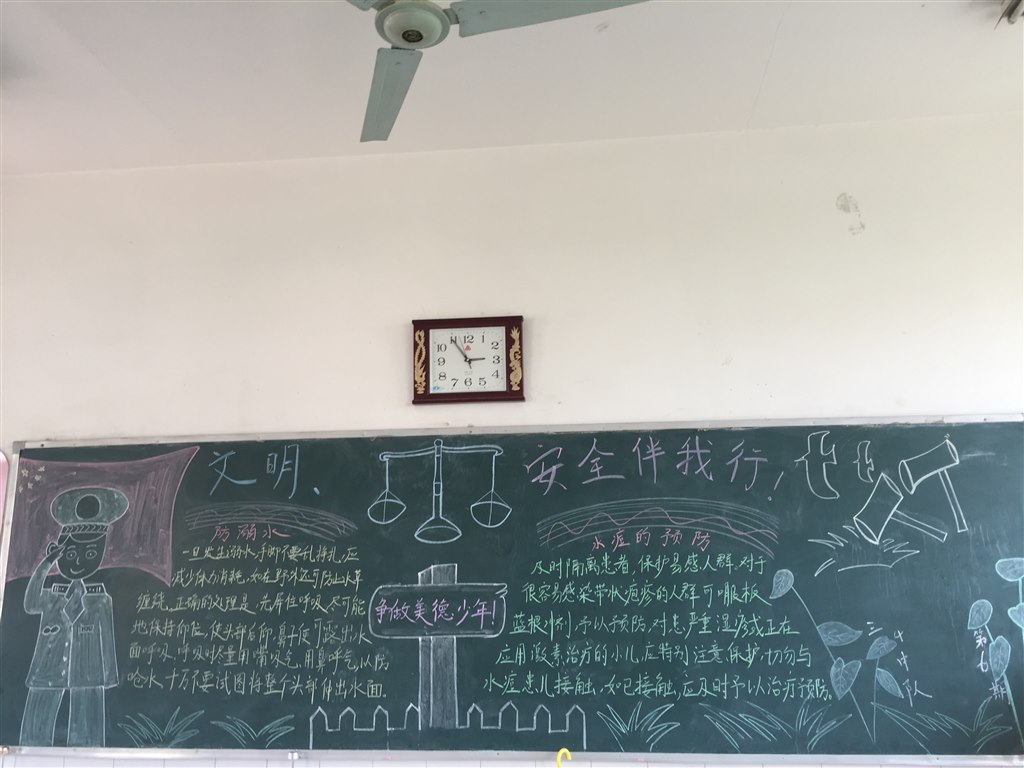 12
1
2
3
4
5
6
7
8
9
10
11
文明、
安全伴我行!
防溺水
一旦发生溺水,手脚不要乱挣扎,应
减少体力消耗,如在野外还可防止水草
缠绕。正确的处理是:先屏住呼吸,尽可能
地保持仰位,使头部后仰,鼻子便可露出水
面呼吸.呼吸时尽量用嘴吸气,用鼻呼气,以防
呛水,千万不要试图将整个头部伸出水面.
争做美德少年!
水痘的预防
及时隔离患者,保护易感人群.对于
很容易感染带状疱疹的人群可服板
蓝根冲剂,予以预防,对患严重湿疹或正在
应用激素治疗的小儿,应特别注意保护,切勿与
水痘患儿接触,如已接触,应及时予以治疗预防.
三中队
第九期